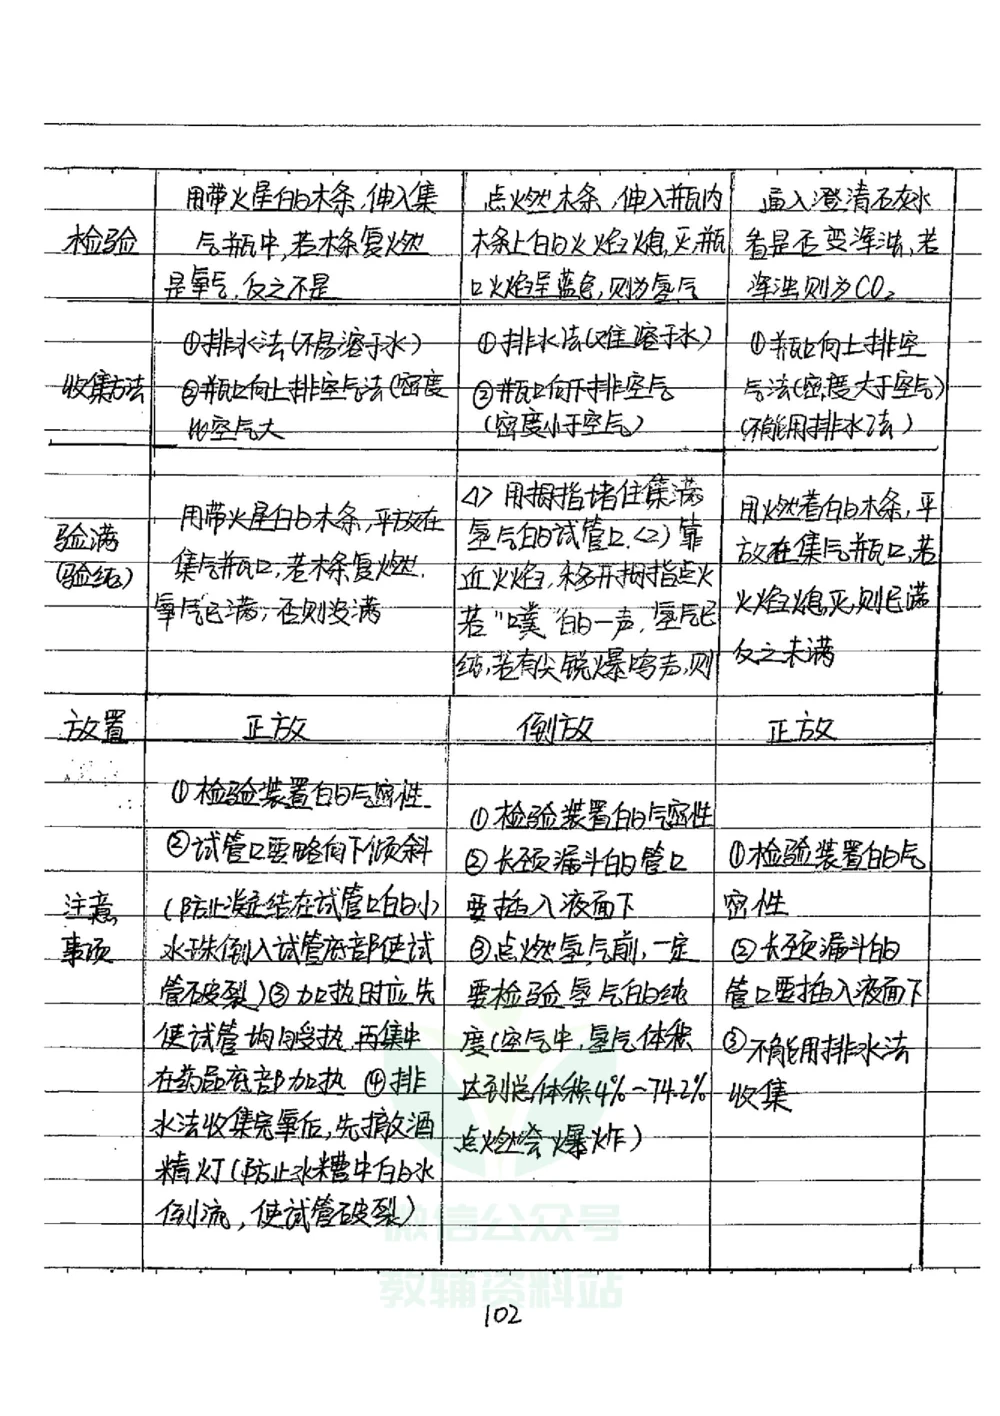 检验
用带火星的木条,伸入集
气瓶中,若木条复燃
是氧气,反之不是
点燃木条,伸入瓶内
木条上的火焰熄灭,瓶
口火焰呈蓝色,则为氢气
通入澄清石灰水
看是否变浑浊,若
浑浊则为CO₂
收集方法
①排水法(不易溶于水)
②瓶口向上排空气法(密度
比空气大
①排水法(难溶于水)
②瓶口向下排空气
(密度小于空气)
①瓶口向上排空
气法(密度大于空气)
(不能用排水法)
验满
(验纯)
用带火星的木条,平放在
集气瓶口,若木条复燃,
氧气已满,否则没满
<1>用拇指堵住集满
氢气的试管口,<2>靠
近火焰,移开拇指点火
若“噗”的一声,氢气已
纯,若有尖锐爆鸣声,则
用燃着的木条,平
放在集气瓶口,若
火焰熄灭,则已满
反之未满
放置
正放
倒放
正放
注意
事项
①检验装置的气密性
②试管口要略向下倾斜
(防止凝结在试管口的小
水珠倒入试管底部使试
管破裂)③加热时应先
使试管均匀受热,再集中
在药品底部加热 ④排
水法收集完氧后,先撤酒
精灯(防止水槽中的水
倒流,使试管破裂)
①检验装置的气密性
②长颈漏斗的管口
要插入液面下
③点燃氢气前,一定
要检验氢气的纯
度(空气中,氢气体积
达到总体积4%~74.2%
点燃会爆炸)
①检验装置的气
密性
②长颈漏斗的
管口要插入液面下
③不能用排水法
收集
微信公众号
教辅资料站
102